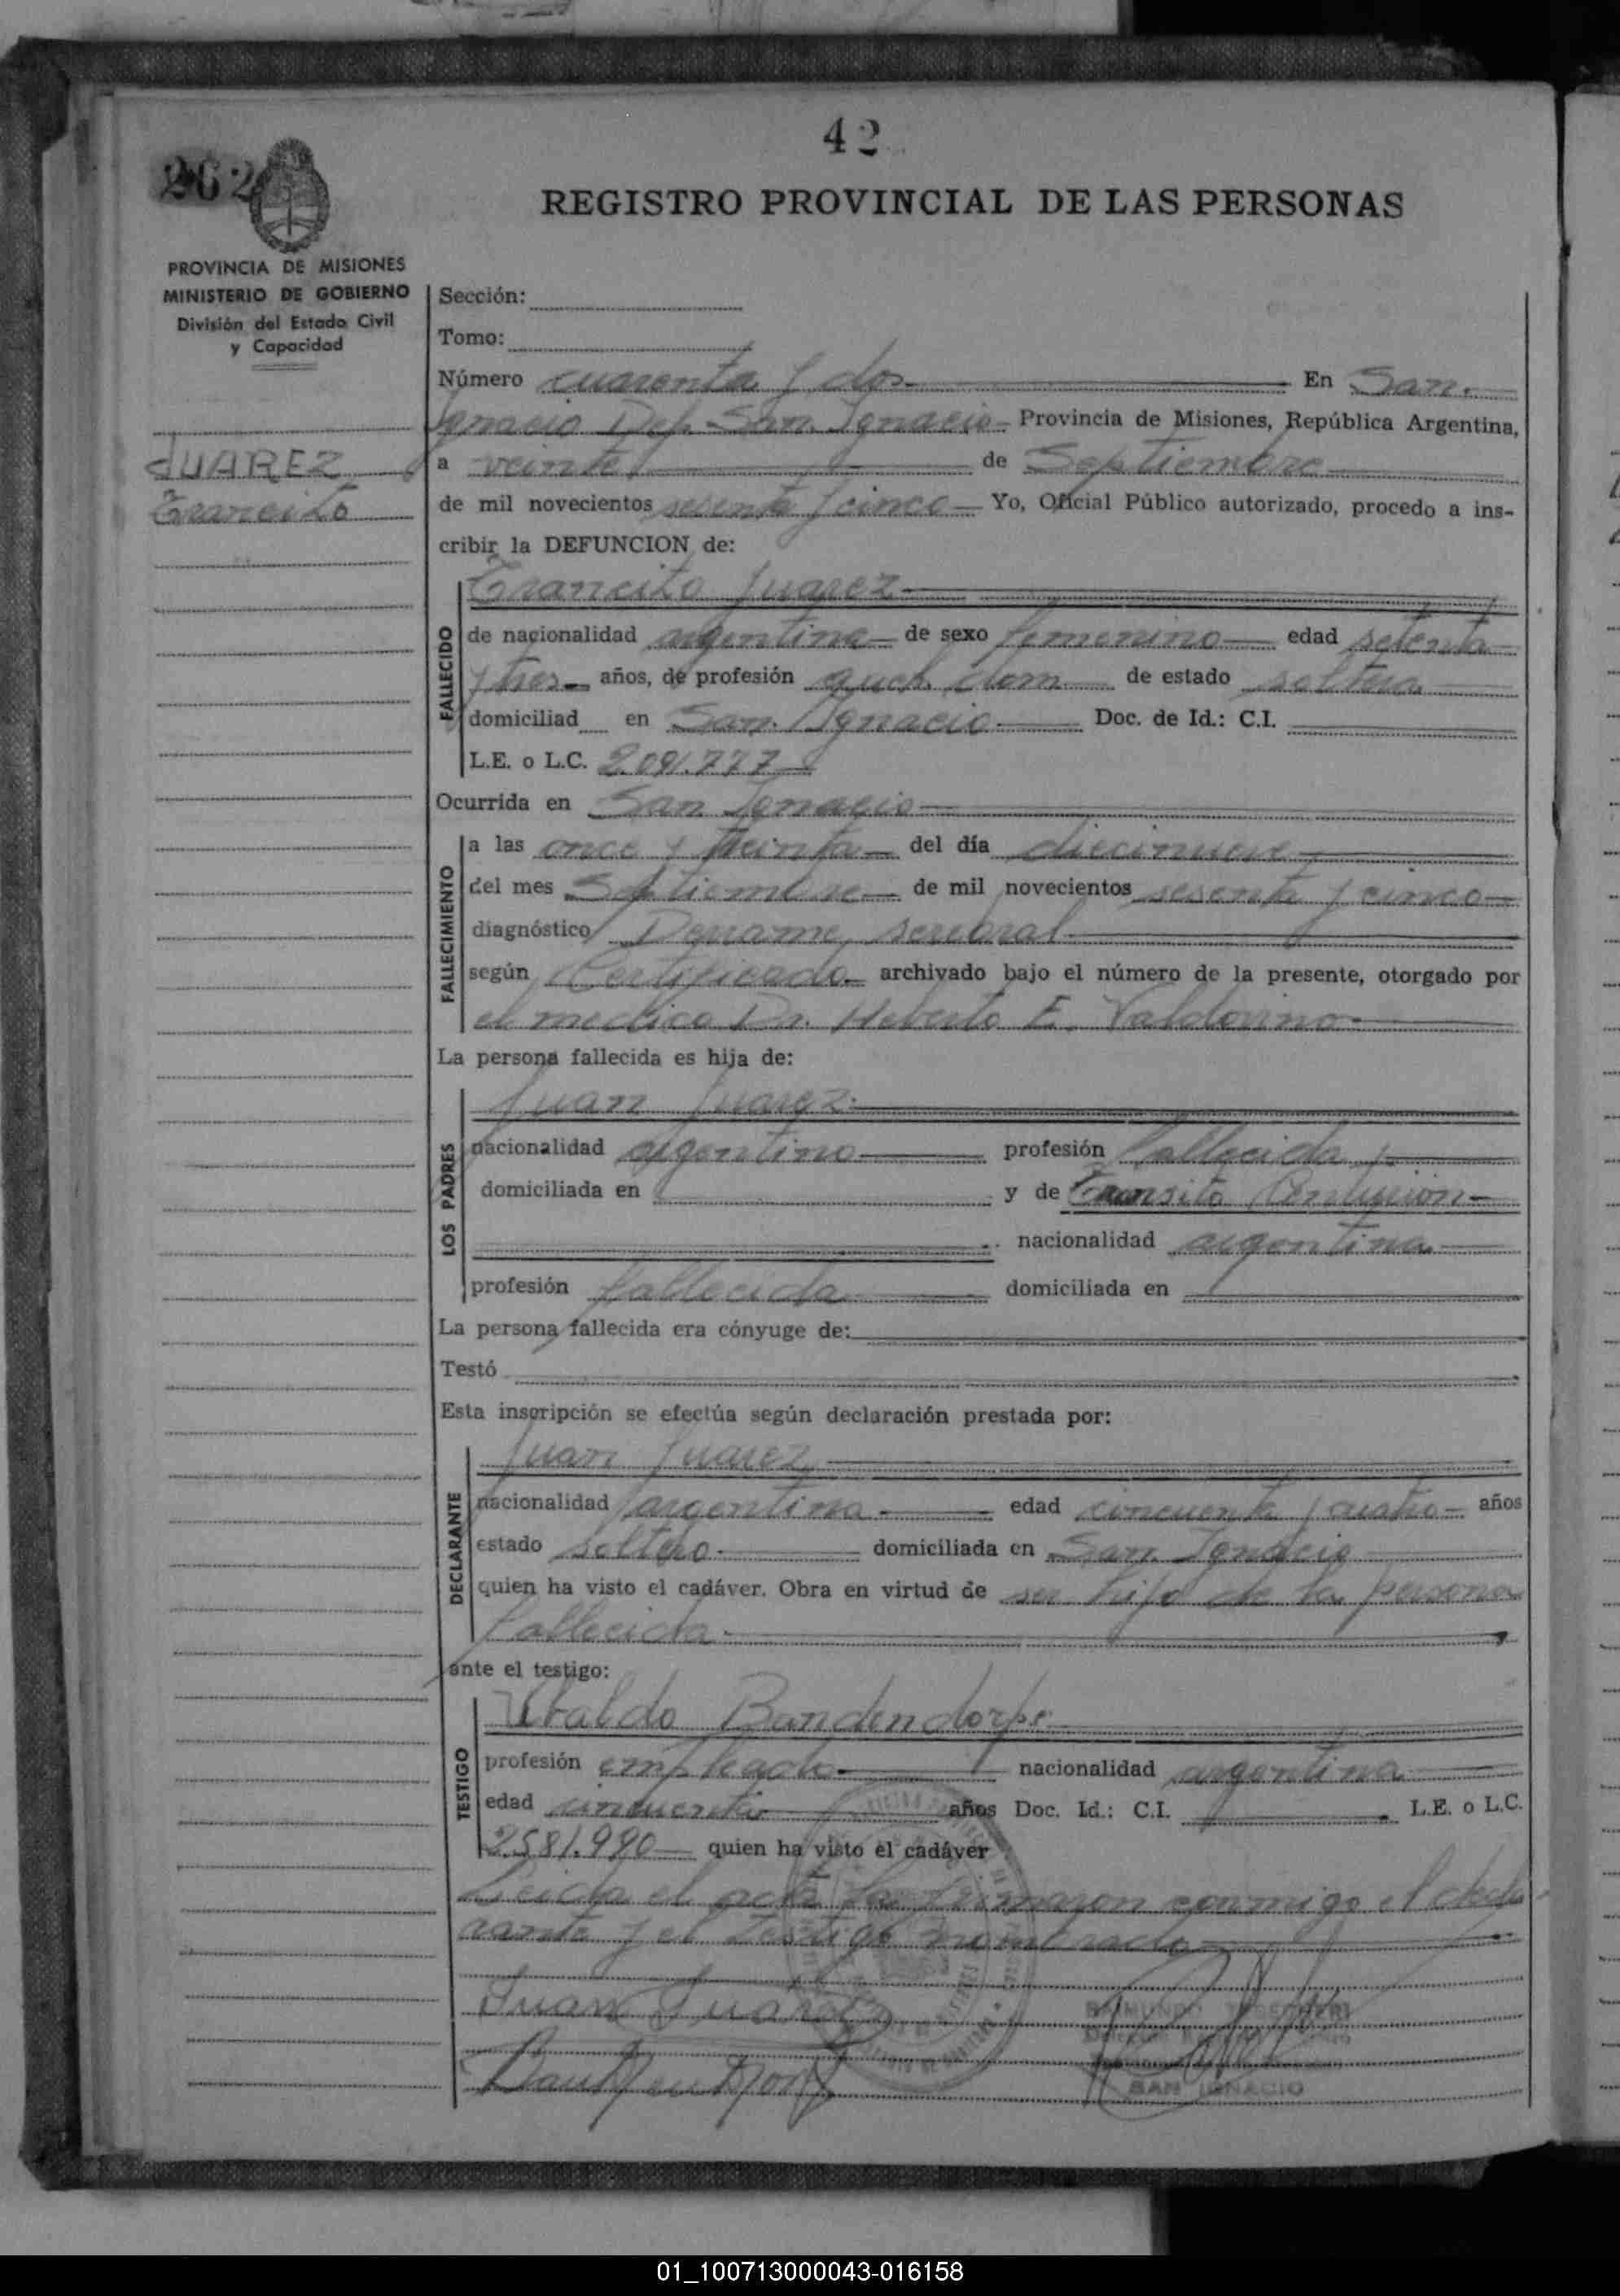 42
262
REGISTRO PROVINCIAL DE LAS PERSONAS
PROVINCIA DE MISIONES
MINISTERIO DE GOBIERNO
División del Estado Civil
y Capacidad
JUAREZ
Trancito
Sección:
Tomo:
Número cuarenta y dos En San
Ignacio Dep. San Ignacio Provincia de Misiones, República Argentina,
a veinte de Septiembre
de mil novecientos sesenta y cinco Yo, Oficial Público autorizado, procedo a ins-
cribir la DEFUNCION de:
FALLECIDO
Trancito Juarez
de nacionalidad argentina de sexo femenino edad setenta
y tres años, de profesión queh. dom. de estado soltera
domiciliad en San Ignacio Doc. de Id.: C.I.
L.E. o L.C. 2.091.777
Ocurrida en San Ignacio
FALLECIMIENTO
a las once y treinta del día diecinueve
del mes Septiembre de mil novecientos sesenta y cinco
diagnóstico Derrame serebral
según Certificado archivado bajo el número de la presente, otorgado por
el medico Dr. Heberto E. Valdovino
La persona fallecida es hija de:
LOS PADRES
Juan Juarez
nacionalidad argentino profesión fallecido
domiciliada en y de Transito Centurion
nacionalidad argentina
profesión fallecida domiciliada en
La persona fallecida era cónyuge de:
Testó
Esta inscripción se efectúa según declaración prestada por:
DECLARANTE
Juan Juarez
nacionalidad argentina edad cincuenta y cuatro años
estado soltero domiciliada en San Ignacio
quien ha visto el cadáver. Obra en virtud de ser hijo de la persona
fallecida
ante el testigo:
TESTIGO
Ubaldo Bandendorpe
profesión empleado nacionalidad argentina
edad cincuenta años Doc. Id.: C.I. L.E. o L.C.
2.581.990 quien ha visto el cadáver
Leida el acta la firmaron conmigo el decla-
rante y el testigo nombrado
Juan Juarez
RAIMUNDO
SAN IGNACIO
01_100713000043-016158